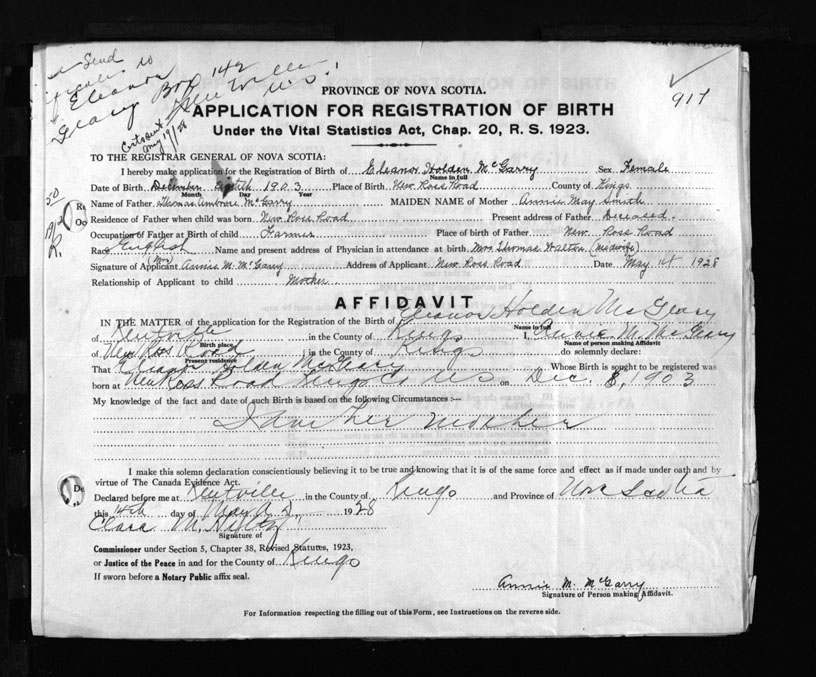 Send
to
Eleanor Box 142
Geary Kentville
N.S.
Certs sent
May 19/28
917
PROVINCE OF NOVA SCOTIA.
APPLICATION FOR REGISTRATION OF BIRTH
Under the Vital Statistics Act, Chap. 20, R. S. 1923.
TO THE REGISTRAR GENERAL OF NOVA SCOTIA:
I hereby make application for the Registration of Birth of Eleanor Holden McGarry Sex Female
Name in full
Date of Birth December eighth 1903 Place of Birth New Ross Road County of Kings
Month Day Year
Name of Father Thomas Ambrose McGarry MAIDEN NAME of Mother Annie May Smith
Residence of Father when child was born New Ross Road Present address of Father Deceased
Occupation of Father at Birth of child Farmer Place of birth of Father New Ross Road
Race English Name and present address of Physician in attendance at birth Mrs Thomas Walton (Midwife)
Signature of Applicant (Mrs) Annie M. McGarry Address of Applicant New Ross Road Date May 14 1928
Relationship of Applicant to child Mother
AFFIDAVIT
IN THE MATTER of the application for the Registration of the Birth of Eleanor Holden McGeary
Name in full
of Kentville in the County of Kings I, Annie M. McGeary
Birth place Name of person making Affidavit
of New Ross Road in the County of Kings do solemnly declare:
Present residence
That Eleanor Holden McGeary Whose Birth is sought to be registered was
born at New Ross Road Kings Co N.S on Dec. 8, 1903
My knowledge of the fact and date of such Birth is based on the following Circumstances :—
I am her mother
I make this solemn declaration conscientiously believing it to be true and knowing that it is of the same force and effect as if made under oath and by
virtue of The Canada Evidence Act.
Declared before me at Kentville in the County of Kings and Province of Nova Scotia
this 14th day of May A.D. 1928
Clara M.
Signature of
Commissioner under Section 5, Chapter 38, Revised Statutes, 1923,
or Justice of the Peace in and for the County of Kings
If sworn before a Notary Public affix seal.
Annie M. McGarry
Signature of Person making Affidavit.
For Information respecting the filling out of this Form, see Instructions on the reverse side.